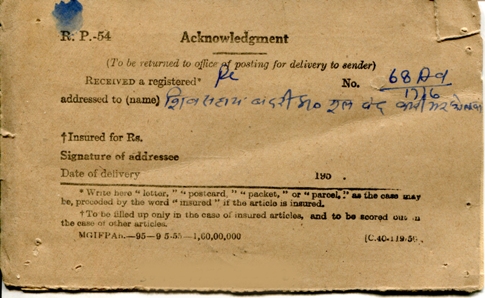 R. P.-54 Acknowledgment
(To be returned to office of posting for delivery to sender)
RECEIVED a registered* No. 68
addressed to (name) शिव सहाय
†Insured for Rs.
Signature of addressee
Date of delivery 195 .
* Write here "letter," "postcard," "packet," or "parcel," as the case may
be, preceded by the word "insured" if the article is insured.
†To be filled up only in the case of insured articles, and to be scored out in
the case of other articles.
MGIFPAh.—95—9-5-55—1,60,00,000 [C.40-119-56.